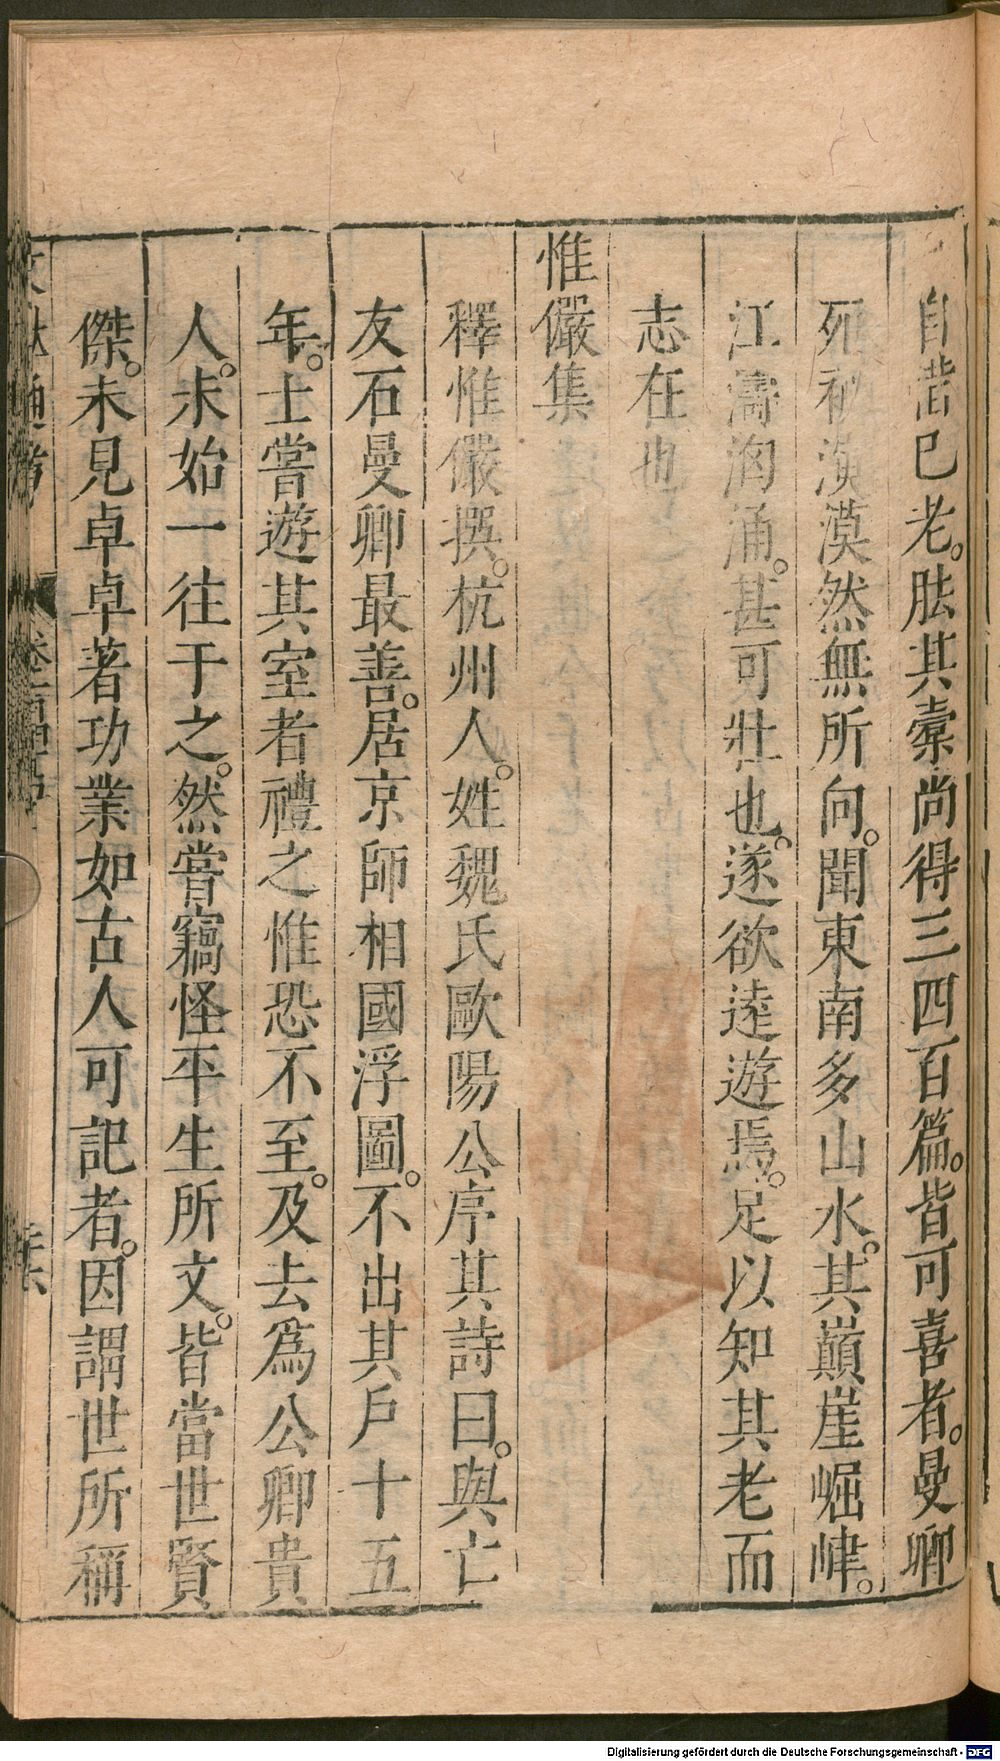 自昔已老。胠其槖尚得三四百篇。皆可喜者。曼卿
死祕演漠然無所向。聞東南多山水。其巔崖崛峍。
江濤洶涌。甚可壯也。遂欲逺遊焉。足以知其老而
志在也
惟儼集
釋惟儼撰。杭州人。姓魏氏歐陽公序其詩曰。與亡
友石曼卿最善。居京師相國浮圖。不出其戶十五
年。士嘗遊其室者禮之惟恐不至。及去為公卿貴
人。未始一往于之。然嘗竊怪平生所文。皆當世賢
傑。未見卓卓著功業如古人可記者。因謂世所稱
Digitalisierung gefördert durch die Deutsche Forschungsgemeinschaft - DFG